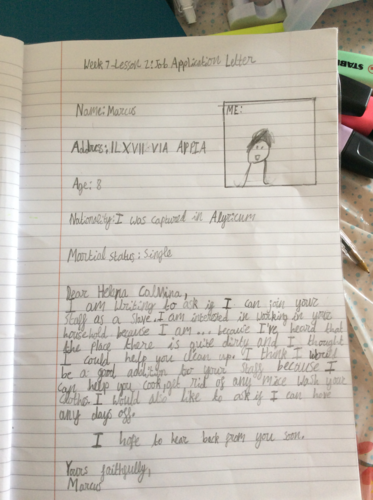 Week 7-Lesson 2: Job Application Letter
Name: Marcus
ME:
Address: ILXVII VIA APPIA
Age: 8
Nationality: I was captured in Alyricum
Martial status: Single
Dear Helena Calvina,
I am writing to ask if I can join your
staff as a slave. I am interested in working in your
household because I am... because I've heard that
the place there is quite dirty and I thought
I could help you clean up. I think I would
be a good addition to your staff because I
can help you cook, get rid of any mice wash your
clothes. I would also like to ask if I can have
any days off.
I hope to hear back from you soon.
Yours faithfully,
Marcus
STAB